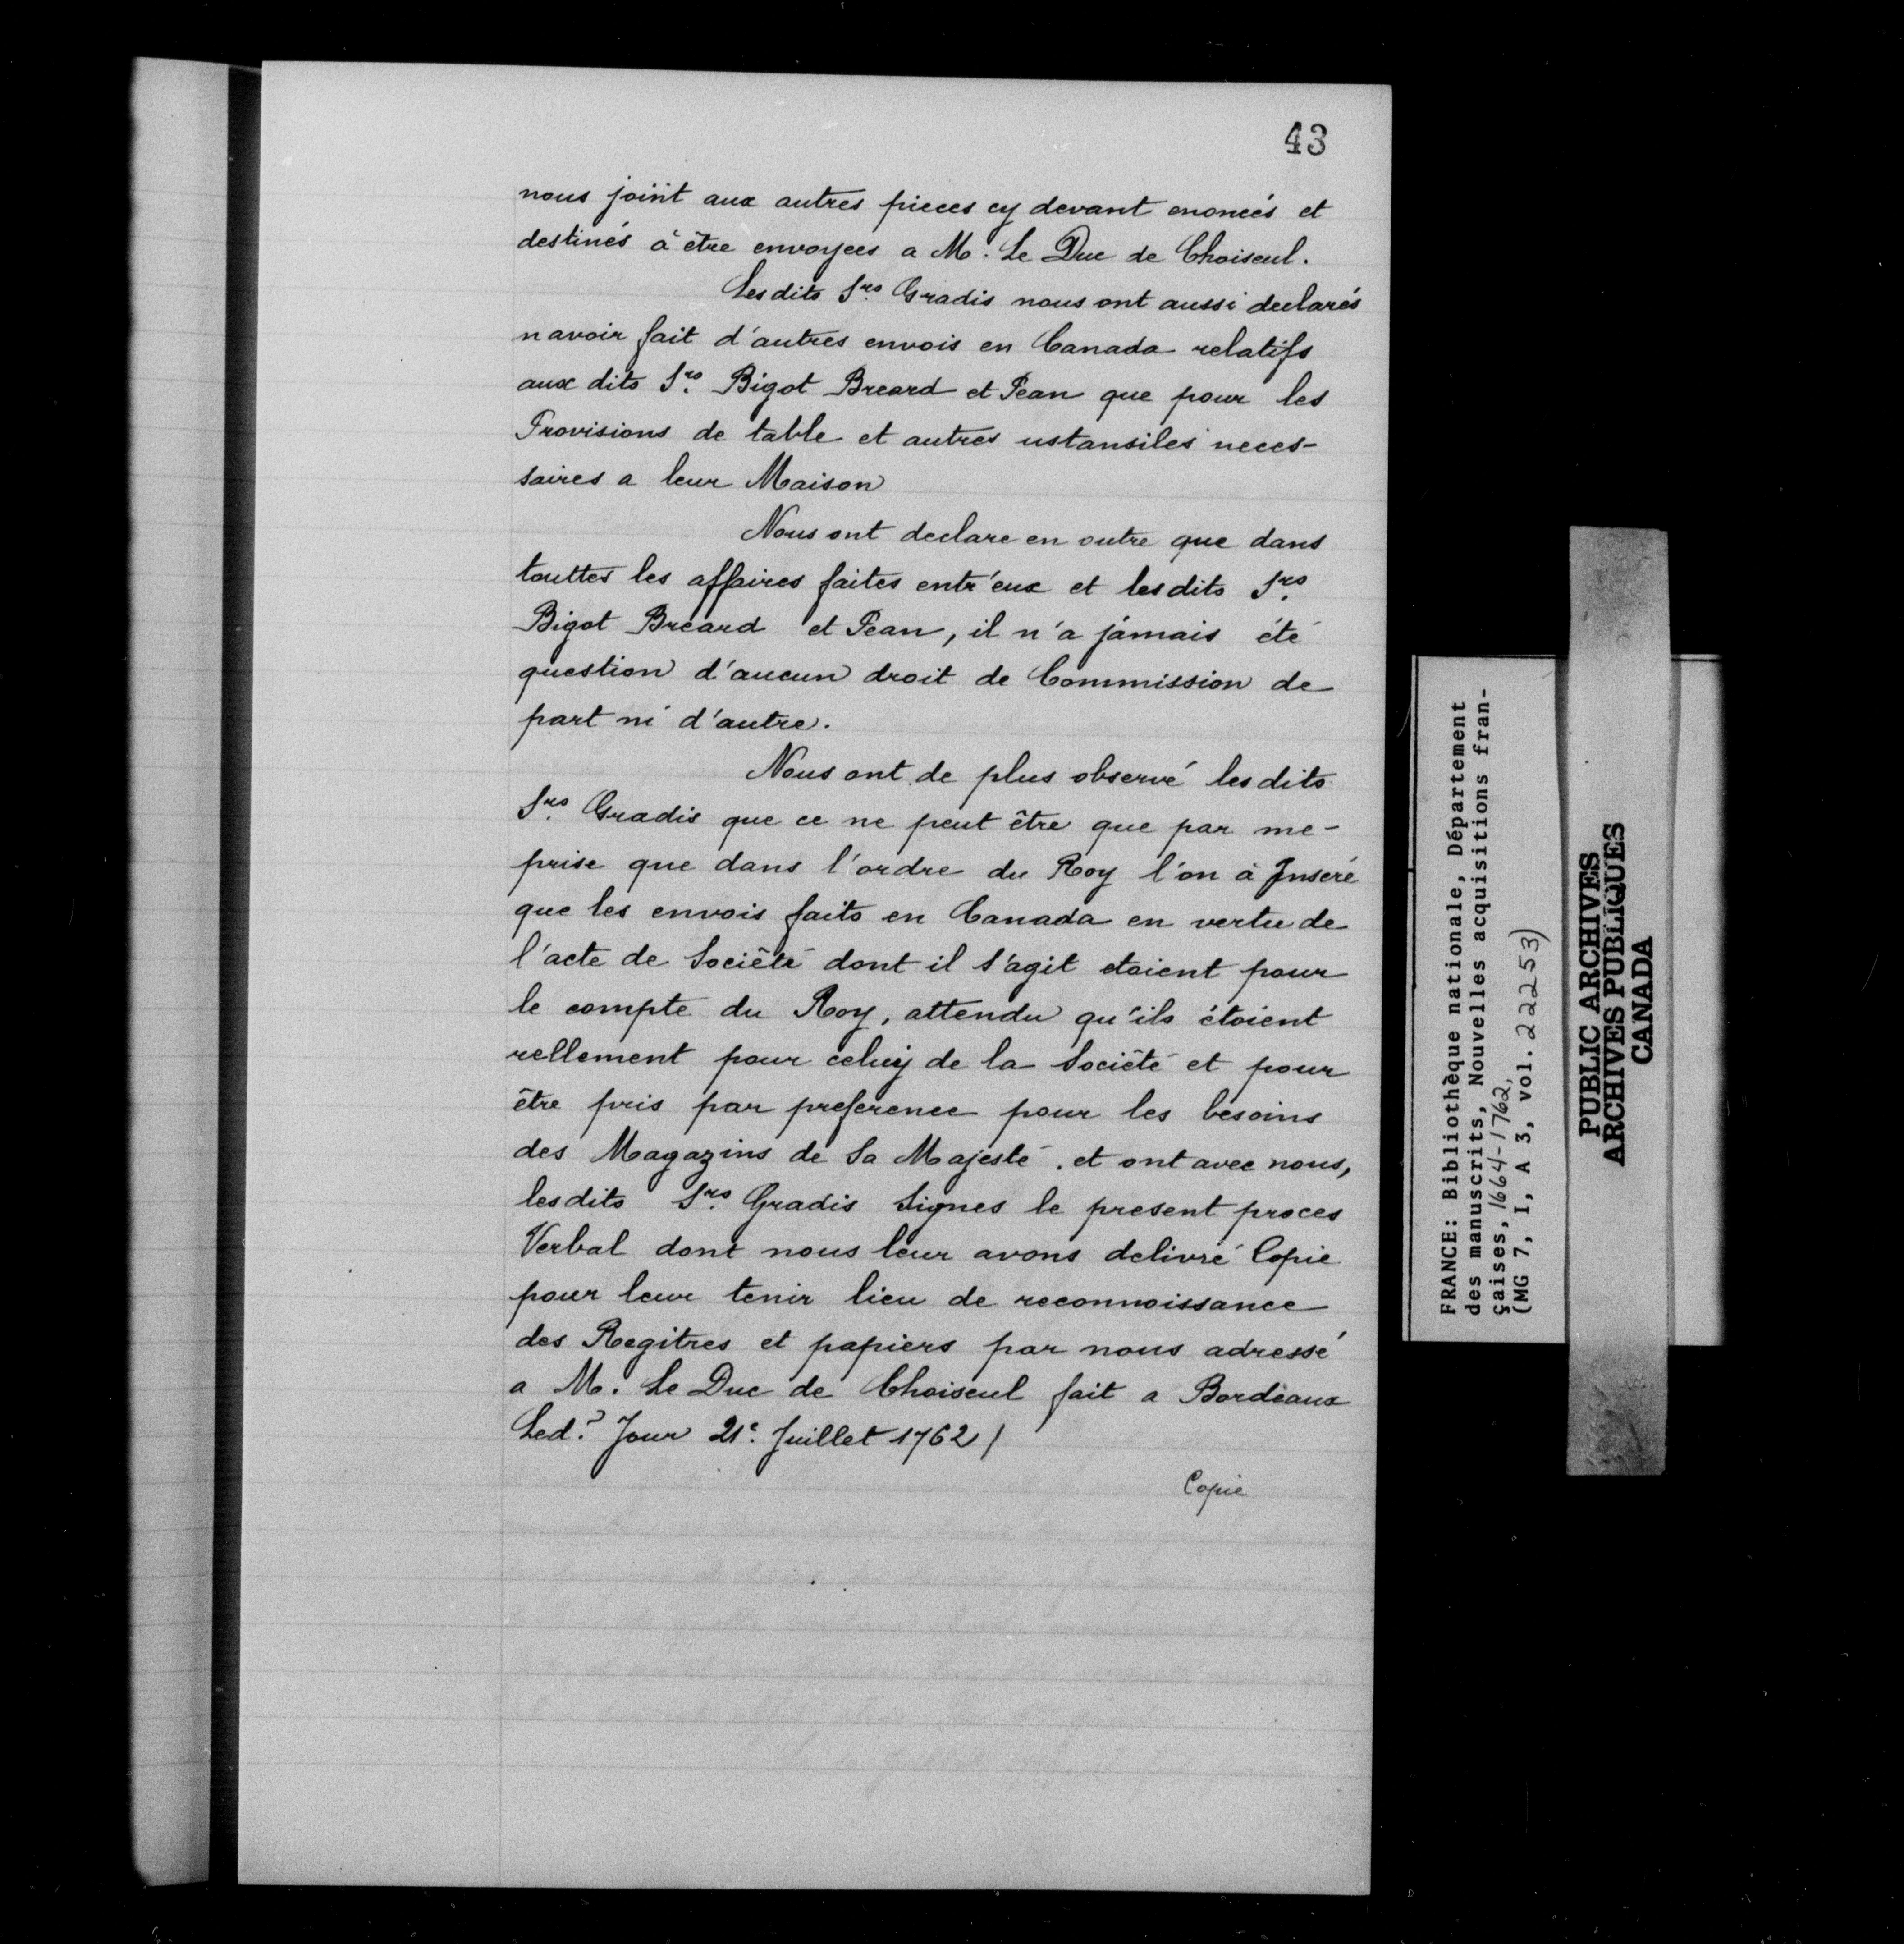 43
nous joint aux autres pieces cy devant enoncés et
destinés à être envoyees a M. Le Duc de Choiseul.
Lesdits Srs. Gradis nous ont aussi declarés
navoir fait d'autres envois en Canada relatifs
aux dits Srs. Bigot Breard et Pean que pour les
Provisions de table et autres ustansiles neces-
saires a leur Maison
Nous ont declare en outre que dans
touttes les affaires faites entr'eux et lesdits Srs.
Bigot Breard et Pean, il n'a jamais été
question d'aucun droit de Commission de
part ni d'autre.
Nous ont de plus observé lesdits
Srs. Gradis que ce ne peut être que par me-
prise que dans l'ordre du Roy l'on à Inseré
que les envois faits en Canada en vertu de
l'acte de Société dont il s'agit etoient pour
le compte du Roy, attendu qu'ils étoient
rellement pour celuy de la Société et pour
être pris par preference pour les besoins
des Magazins de Sa Majesté. et ont avec nous,
lesdits Srs. Gradis Signes le present proces
Verbal dont nous leur avons delivré Copie
pour leur tenir lieu de reconnoissance
des Regitres et papiers par nous adressé
a M. Le Duc de Choiseul fait a Bordeaux
Led? Jour 21e. Juillet 1762 /
Copie
FRANCE: Bibliothèque nationale, Département
des manuscrits, Nouvelles acquisitions fran-
çaises, 1664-1762,
(MG 7, I, A 3, vol. 22253)
PUBLIC ARCHIVES
ARCHIVES PUBLIQUES
CANADA